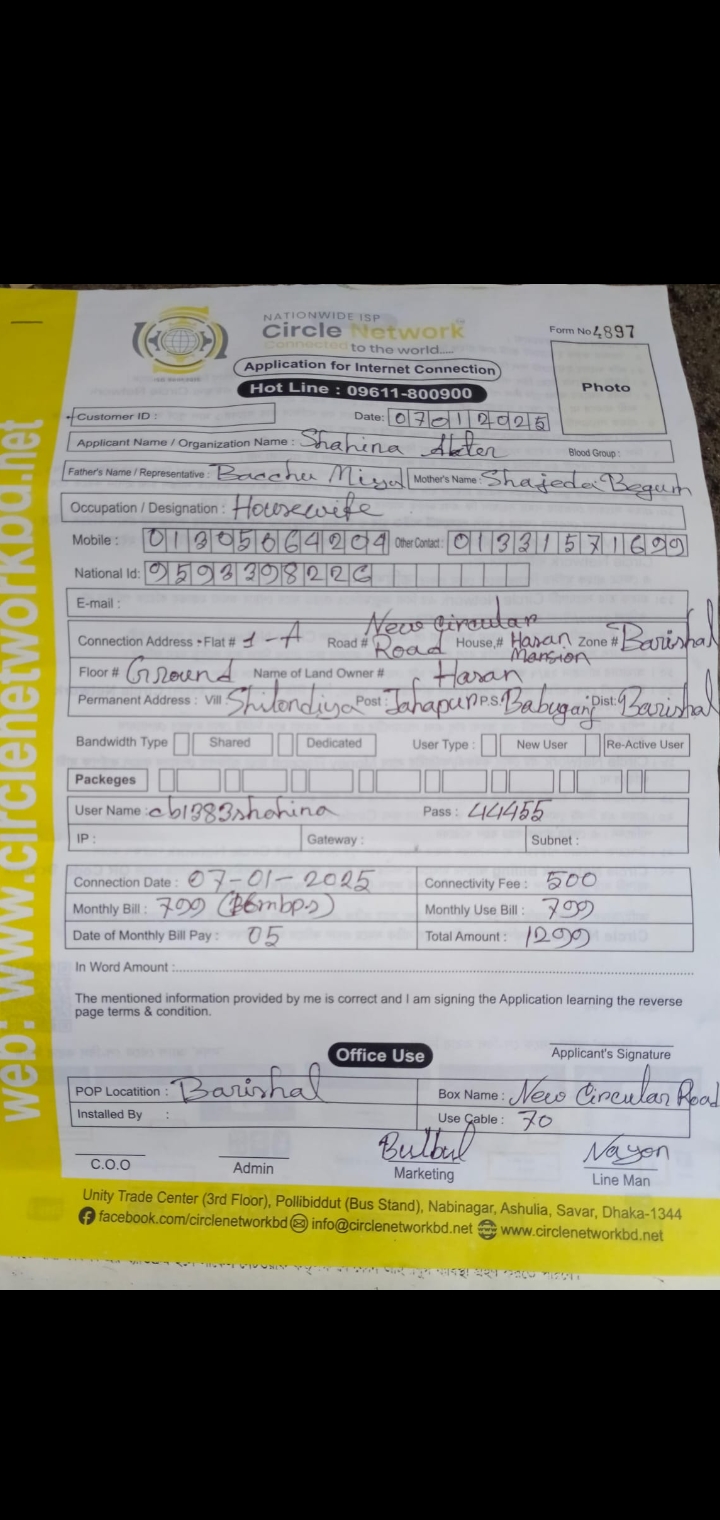 web: www.circlenetworkbd.net
NATIONWIDE ISP
Circle Network
Connected to the world....
Form No 4897
Application for Internet Connection
Hot Line : 09611-800900
Photo
Customer ID :
Date: 07012025
Applicant Name / Organization Name : Shahina Akter
Blood Group :
Father's Name / Representative : Bacchu Miya Mother's Name : Shajeda Begum
Occupation / Designation : Housewife
Mobile : 01305664204 Other Contact : 01331571699
National Id: 9593398226
E-mail :
Connection Address - Flat # 1-A Road # New Circular Road House,# Hasan Mansion Zone # Barishal
Floor # Ground Name of Land Owner # Hasan
Permanent Address : Vill Shilondiya Post : Jahapur P.S Babuganj Dist: Barishal
Bandwidth Type Shared Dedicated User Type : New User Re-Active User
Packeges
User Name : cb1383shahina Pass : 44455
IP : Gateway : Subnet :
Connection Date : 07-01-2025 Connectivity Fee : 500
Monthly Bill : 799 (mbps) Monthly Use Bill : 799
Date of Monthly Bill Pay : 05 Total Amount : 1299
In Word Amount :
The mentioned information provided by me is correct and I am signing the Application learning the reverse
page terms & condition.
Office Use
Applicant's Signature
POP Locatition : Barishal Box Name : New Circular Road
Installed By : Use Cable : 70
Bulbul Nayon
C.O.O Admin Marketing Line Man
Unity Trade Center (3rd Floor), Pollibiddut (Bus Stand), Nabinagar, Ashulia, Savar, Dhaka-1344
facebook.com/circlenetworkbd info@circlenetworkbd.net www.circlenetworkbd.net